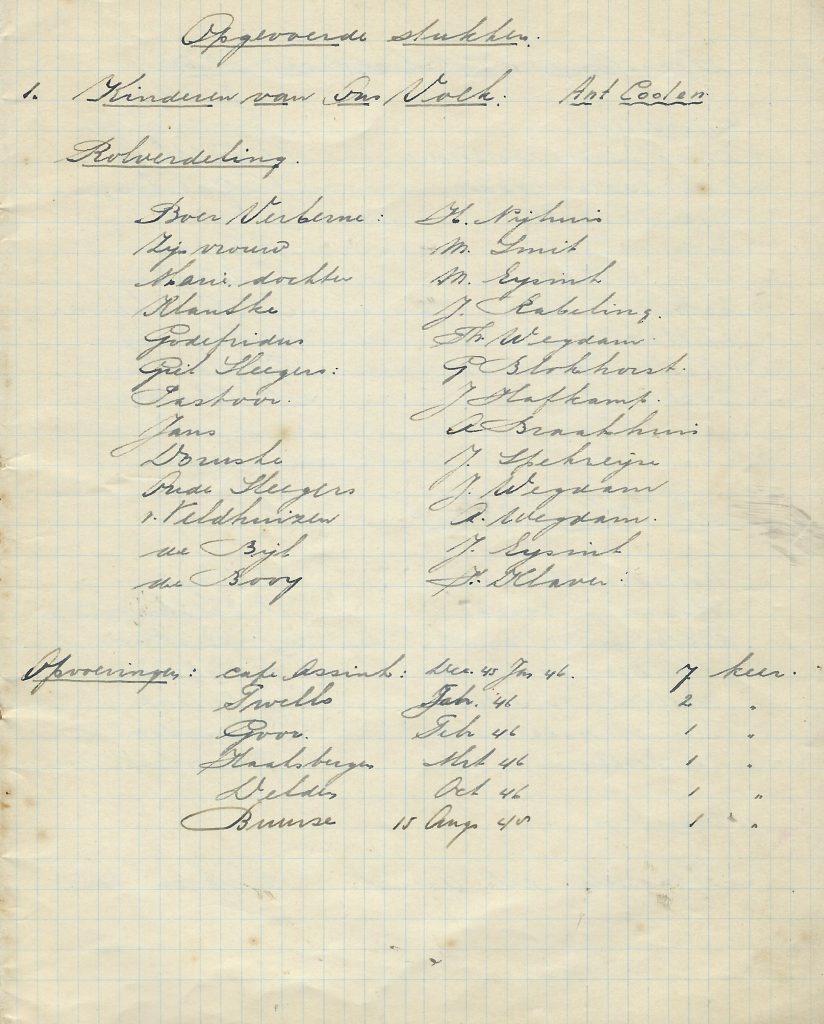 Opgevoerde stukken.
1. Kinderen van Ons Volk: Ant Coolen.
Rolverdeling.
Boer Verberne: H. Nijhuis
Zijn vrouw M. Smit
Marie dochter M. Eysink
Klauske J. Rabeling.
Godefridus Th. Wegdam.
Giel Sleegers: G Blokhorst.
Pastoor. J Hofkamp.
Jans A Braakhuis
Doruske J. Spekreyse
Oude Sleegers J. Wegdam
v. Veldhuizen A. Wegdam.
de Bijl J. Eysink
de Booy H. Klaver:
Opvoeringen: cafe Assink: Dec. 45 Jan 46. 7 keer.
Twello Febr. 46 2 "
Goor. Febr 46 1 "
Haaksbergen Mrt 46 1 "
Delden Oct 46 1 "
Buurse 15 Aug 1 "